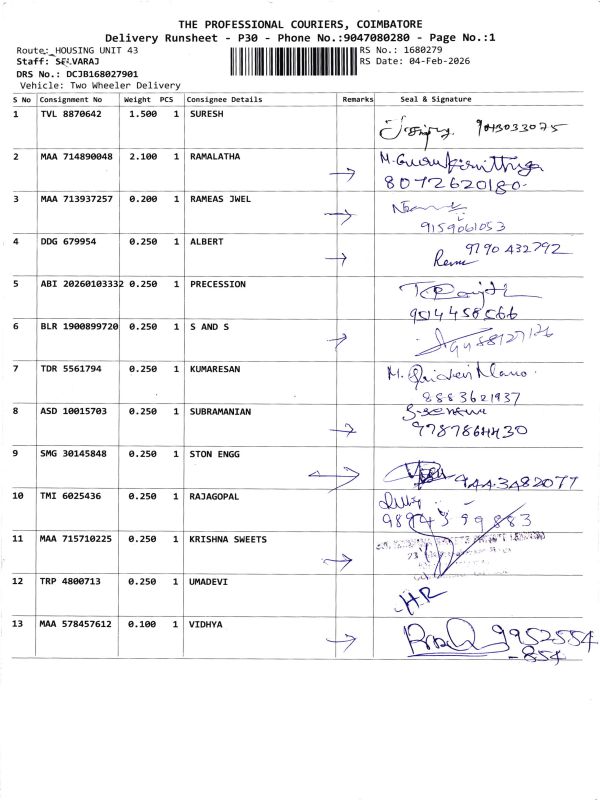 THE PROFESSIONAL COURIERS, COIMBATORE
Delivery Runsheet - P30 - Phone No.:9047080280 - Page No.:1
Route: HOUSING UNIT 43 RS No.: 1680279
Staff: SELVARAJ RS Date: 04-Feb-2026
DRS No.: DCJB168027901
Vehicle: Two Wheeler Delivery
S No Consignment No Weight PCS Consignee Details Remarks Seal & Signature
1 TVL 8870642 1.500 1 SURESH
2 MAA 714890048 2.100 1 RAMALATHA
8072620180
3 MAA 713937257 0.200 1 RAMEAS JWEL
9159061053
4 DDG 679954 0.250 1 ALBERT
9790 432792
5 ABI 20260103332 0.250 1 PRECESSION
9514458566
6 BLR 1900899720 0.250 1 S AND S
7 TDR 5561794 0.250 1 KUMARESAN
8883621937
8 ASD 10015703 0.250 1 SUBRAMANIAN
9787864430
9 SMG 30145848 0.250 1 STON ENGG
10 TMI 6025436 0.250 1 RAJAGOPAL
98943 99883
11 MAA 715710225 0.250 1 KRISHNA SWEETS
12 TRP 4800713 0.250 1 UMADEVI
H.R
13 MAA 578457612 0.100 1 VIDHYA
9952554
-854